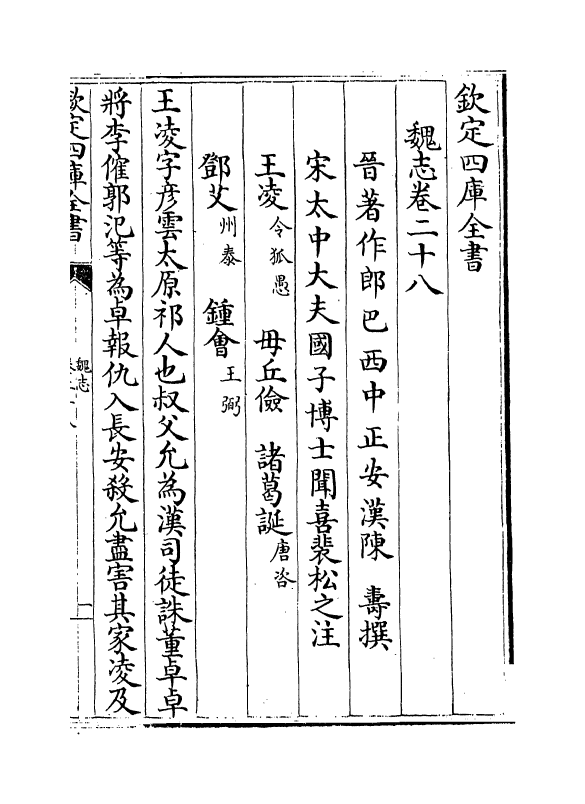 欽定四庫全書
魏志卷二十八
晉著作郎巴西中正安漢陳　壽撰
宋太中大夫國子博士聞喜裴松之注
王凌令狐愚　毋丘儉　諸葛誕唐咨
鄧艾州泰　鍾會王弼
王凌字彥雲太原祁人也叔父允為漢司徒誅董卓卓
將李傕郭汜等為卓報仇入長安殺允盡害其家凌及
欽定四庫全書
魏志
卷二十八
一